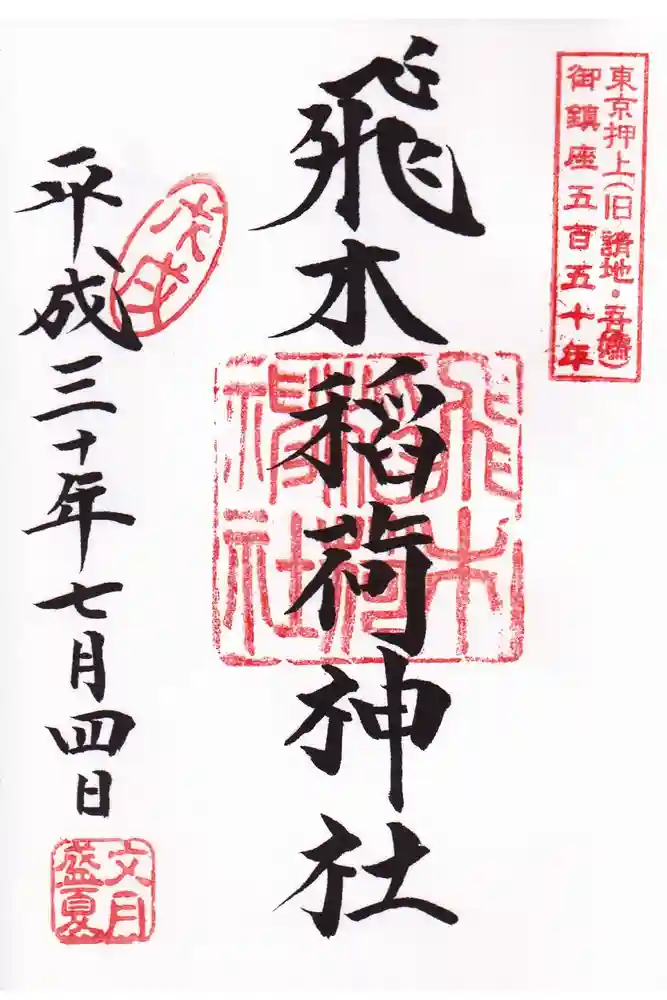 東京押上(旧 請地・吾嬬)
御鎮座五百五十年
飛木稲荷神社
飛木
稲荷
神社
平成三十年七月四日
文月
盛夏